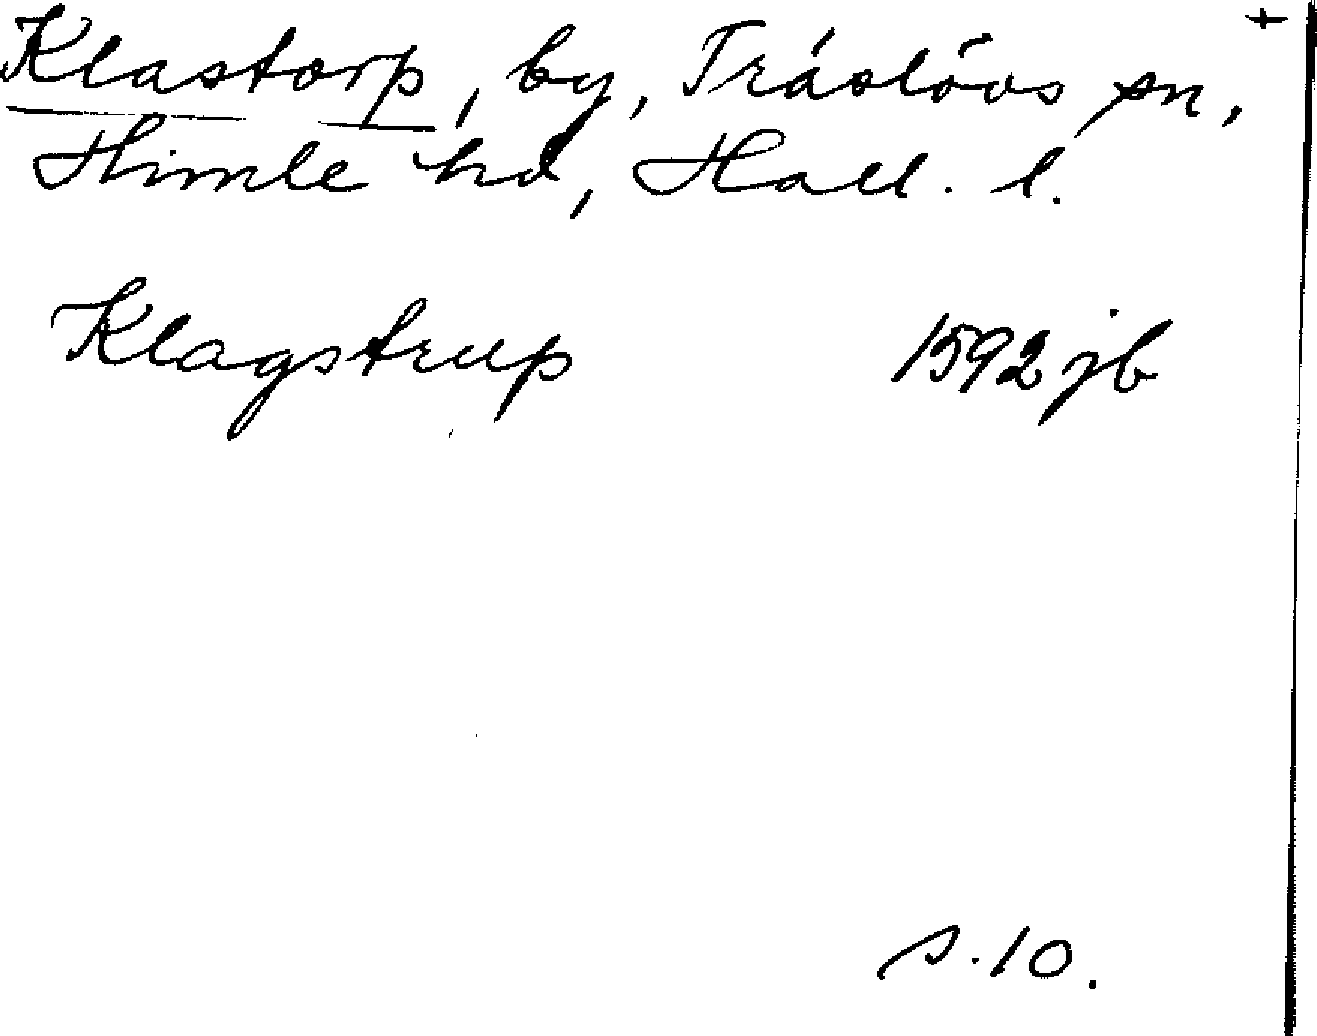 Klastorp, by, Träslövs sn, +
Himle hd, Hall. l.
Klagstrup 1592 jb
s. 10.